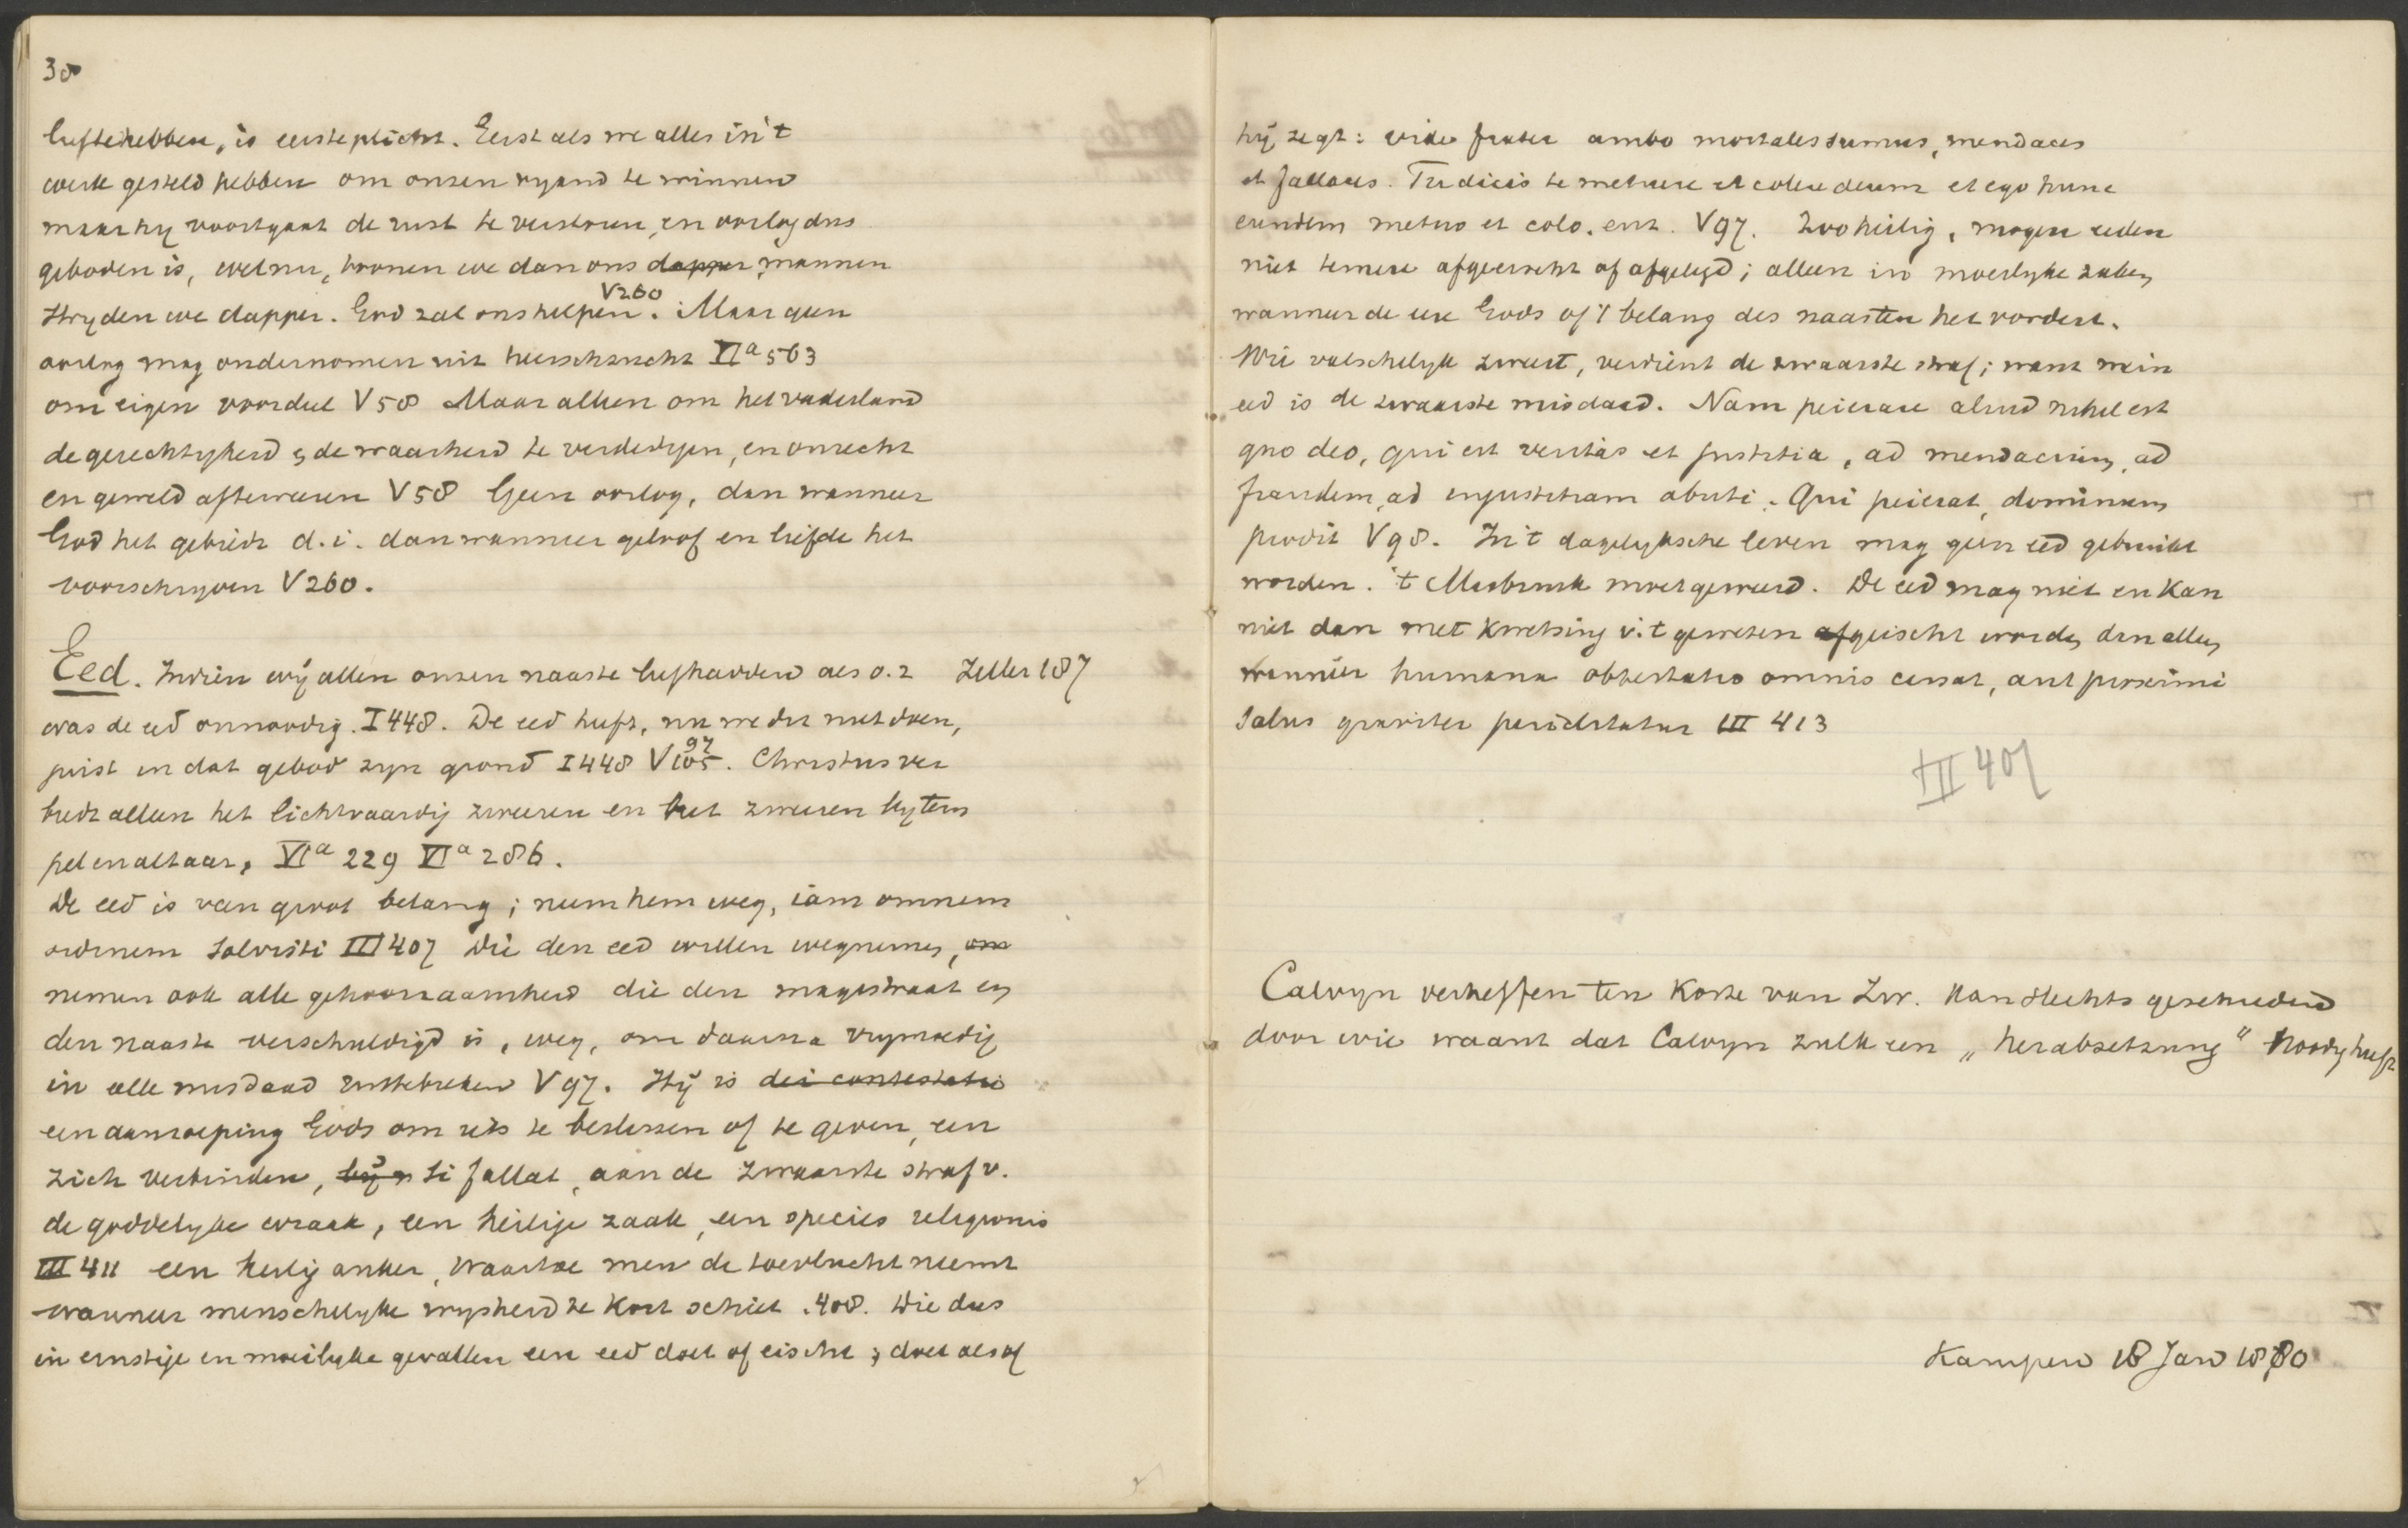 38
lief te hebben, is eerste plicht. Eerst als we alles in 't
werk gesteld hebben om onzen vyand te winnen
maar hy voortgaat de rust te verstoren, en oorlog dus
geboden is, welnu, tronen we dan ons dapper mannen
Stryden we dapper. God zal ons helpen V260. Maar geen
oorlog mag ondernomen uit heerschzucht VIa 563
om eigen voordeel V58 Maar alleen om het vaderland
de gerechtigheid & de waarheid te verdedigen, en onrecht
en geweld afteweren V58 Geen oorlog, dan wanneer
God het gebiedt d.i. dan wanneer geloof en liefde het
voorschryven V260.
Eed. Indien wij allen onzen naaste liefhadden als o.z Zeller 187
was de eed onnoodig. I448. De eed heeft, nu we dit niet doen,
juist in dat gebod zyn grond I448 V105 97. Christus ver
biedt alleen het lichtvaardig zweren en het zweren by tem
pel en altaar, VIa 229 VIa 286.
De eed is van groot belang; neem hem weg, iam omnem
ordinem solvisti III407 Die den eed willen wegnemen, om
nemen ook alle gehoorzaamheid die den magistraat en
den naaste verschuldigd is, weg, om daarna vrymoedig
in alle misdaad uittebreken V97. Hij is dei contestatio
een aanroeping Gods om iets te beslissen of te geven, een
zich verbinden, bij si fallat, aan de zwaarste straf v.
de goddelyke wraak, een heilige zaak, een species religionis
III 411 een heilig anker, waartoe men de toevlucht neemt
wanneer menschelyke wysheid te kort schiet. 408. Wie dus
in ernstige en moeilyke gevallen een eed doet of eischt, doet als of
hij zegt: vide frater ambo mortales sumus, mendaces
et fallaces. Tu dicis te metuere et colere deum et ego hunc
eundem metuo et colo. enz. V97. Zoo heilig, mogen eeden
niet temere afgeeischt of afgelegd; alleen in moeilyke zaken,
wanneer de eer Gods of 't belang des naasten het vordert.
Wie valschelyk zweert, verdient de zwaarste straf; want mein
eed is de zwaarste misdaad. Nam peierare aliud nihil est
quo deo, qui est veritas et justitia, ad mendacium, ad
fraudem, ad injustitiam abuti. Qui peierat, dominum
prodit V98. In 't dagelyksche leven mag geen eed gebruikt
worden. 't Misbruik moet geweerd. De eed mag niet en kan
niet dan met kwetsing v. 't geweten afgeischt worden dan alleen
wanneer humana obtestatio omnis cessat, aut proximi
salus graviter periclitatur III 413
III 407
Calvyn verheffen ten koste van Zw. kan slechts geschieden
door wie waant dat Calvyn zulk een „herabsetzung" noodig heeft
Kampen 18 Jan 1880